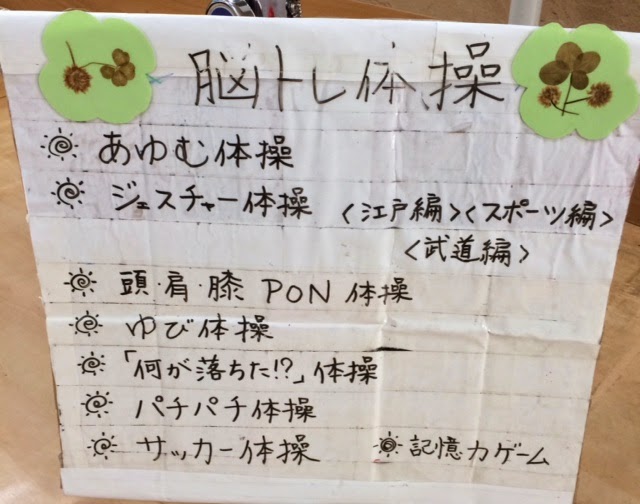 脳トレ体操
あゆむ体操
ジェスチャー体操 〈江戸編〉〈スポーツ編〉
〈武道編〉
頭・肩・膝 PON 体操
ゆび体操
「何が落ちた!?」体操
パチパチ体操
サッカー体操 記憶力ゲーム